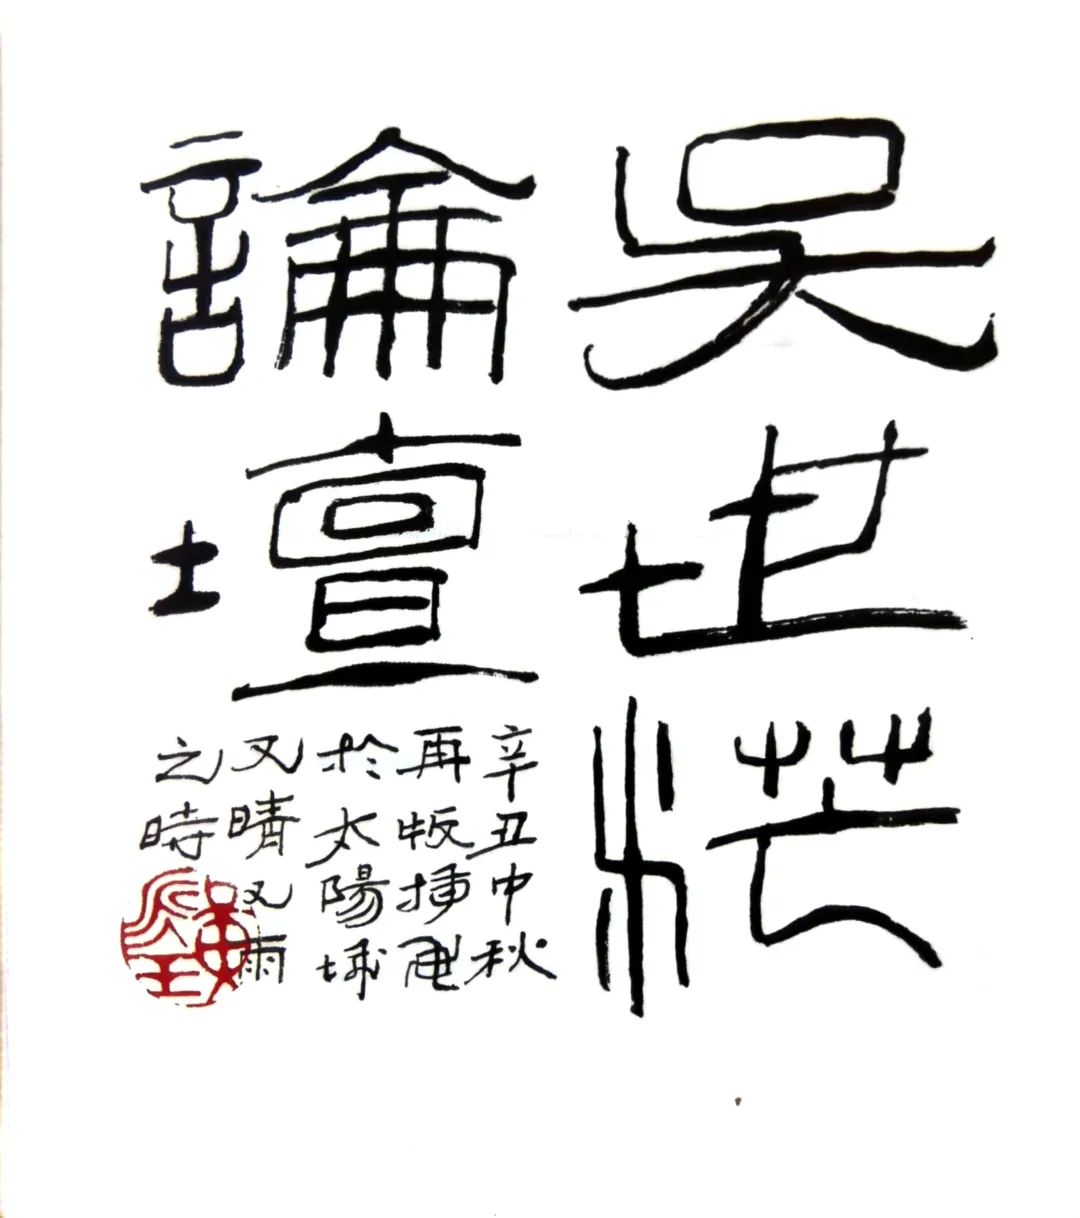 吳世茫
論壇
辛丑中秋
再版插
於太陽城
又晴又雨
之時